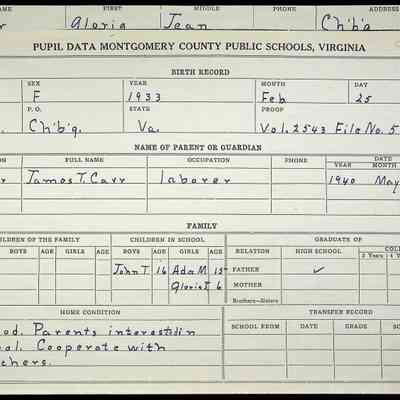 NAME FIRST MIDDLE PHONE ADDRESS
r Gloria Jean Ch'b'g
PUPIL DATA MONTGOMERY COUNTY PUBLIC SCHOOLS, VIRGINIA
BIRTH RECORD
SEX YEAR MONTH DAY
F 1933 Feb 25
P.O. STATE PROOF
Ch'b'g. Va. Vol. 2543 File No. 5
NAME OF PARENT OR GUARDIAN
FULL NAME OCCUPATION PHONE DATE
YEAR MONTH
James T. Carr laborer 1940 May
FAMILY
CHILDREN OF THE FAMILY CHILDREN IN SCHOOL GRADUATE OF
BOYS AGE GIRLS AGE BOYS AGE GIRLS AGE RELATION HIGH SCHOOL COLL
2 Years 4 Y
John T 16 Ada M. 15 FATHER ✓
Gloria J 6 MOTHER
Brothers—Sisters
HOME CONDITION TRANSFER RECORD
od. Parents interested in SCHOOL FROM DATE GRADE SC
ool. Cooperate with
chers.